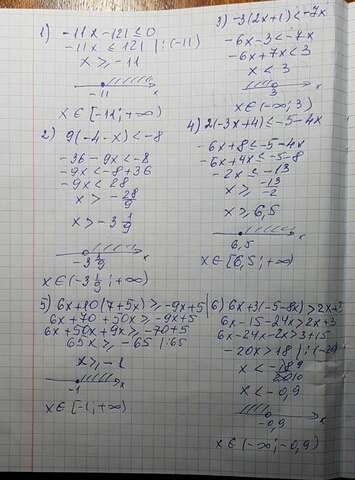 1) -11x-121≤0
-11x ≤ 121 |:(-11)
x ≥ -11
-11 x
x∈[-11;+∞)
2) 9(-4-x)<-8
-36-9x<-8
-9x<-8+36
-9x<28
x > -28/9
x>-3 1/9
-3 1/9 x
x∈(-3 1/9;+∞)
3) -3(2x+1)<-7x
-6x-3<-7x
-6x+7x<3
x<3
3 x
x∈(-∞;3)
4) 2(-3x+4)≤-5-4x
-6x+8≤-5-4x
-6x+4x≤-5-8
-2x≤-13
x≥ -13/-2
x≥6,5
6,5 x
x∈[6,5;+∞)
5) 6x+10(7+5x)≥-9x+5
6x+70+50x≥-9x+5
6x+50x+9x≥-70+5
65x≥-65 |:65
x≥-1
-1 x
x∈[-1;+∞)
6) 6x+3(-5-8x)>2x+3
6x-15-24x>2x+3
6x-24x-2x>3+15
-20x>18 |:(-20)
x<
x<-0,9
-0,9 x
x∈(-∞;-0,9)